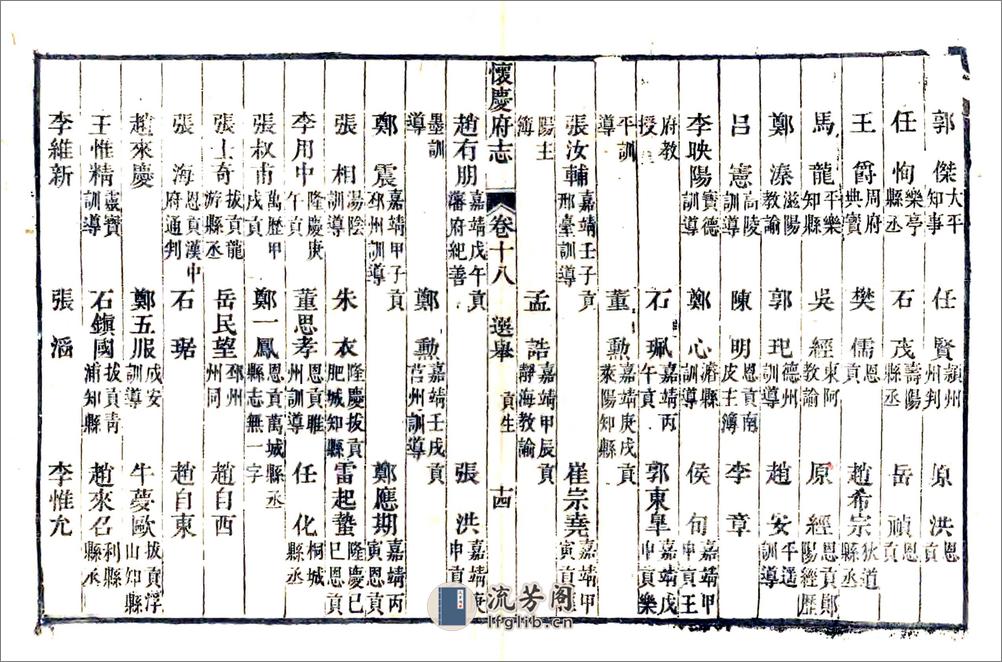 郭傑 大平知事 任賢 潁州州判 原洪 恩貢
任恂 樂亭縣丞 石茂 壽陽縣丞 岳禎 恩貢
王爵 周府典寶 樊儒 恩貢 趙希宗 狄道縣丞
馬龍 平樂知縣 吳經 東阿教諭 原經 恩貢鄖陽經歷
鄭溱 滋陽教諭 郭 德州訓導 趙安 平遥訓導
呂憲 高陵訓導 陳明 恩貢南皮主簿 李章
李映陽 寶德訓導 鄭心 濬縣訓導 侯旬 嘉靖甲申貢王
府教授 石珮 嘉靖丙午貢 郭東臯 嘉靖戊申貢樂
平訓導 董勳 嘉靖庚戌貢萊陽知縣
張汝輔 嘉靖壬子貢邢臺訓導 崔宗堯 嘉靖甲寅貢
陽主簿 孟誥 嘉靖甲辰貢靜海教諭
懷慶府志 卷十八 選舉 貢生 十四
趙有朋 嘉靖戊午貢瀋府紀善 張洪 嘉靖庚申貢
墨訓導 鄭勳 嘉靖壬戌貢莒州訓導
鄭震 嘉靖甲子貢邳州訓導 鄭應期 嘉靖丙寅恩貢
張相 湯陰訓導 朱衣 隆慶拔貢肥城知縣 雷起蟄 隆慶己巳恩貢
李用中 隆慶庚午貢 董思孝 恩貢雅州訓導 任化 桐城縣丞
張叔甫 萬歷甲戌貢 鄭一鳳 恩貢萬城縣丞縣志無一字
張士奇 拔貢龍游縣丞 岳民望 邳州州同 趙自西
張海 恩貢漢中府通判 石琚 趙自東
趙來慶 鄭五服 成安訓導 牛夢歐 拔貢浮山知縣
王惟精 靈寶訓導 石鎮國 拔貢青浦知縣 趙來召 利縣縣丞
李維新 張滔 李惟允
流芳阁
lfglib.cn